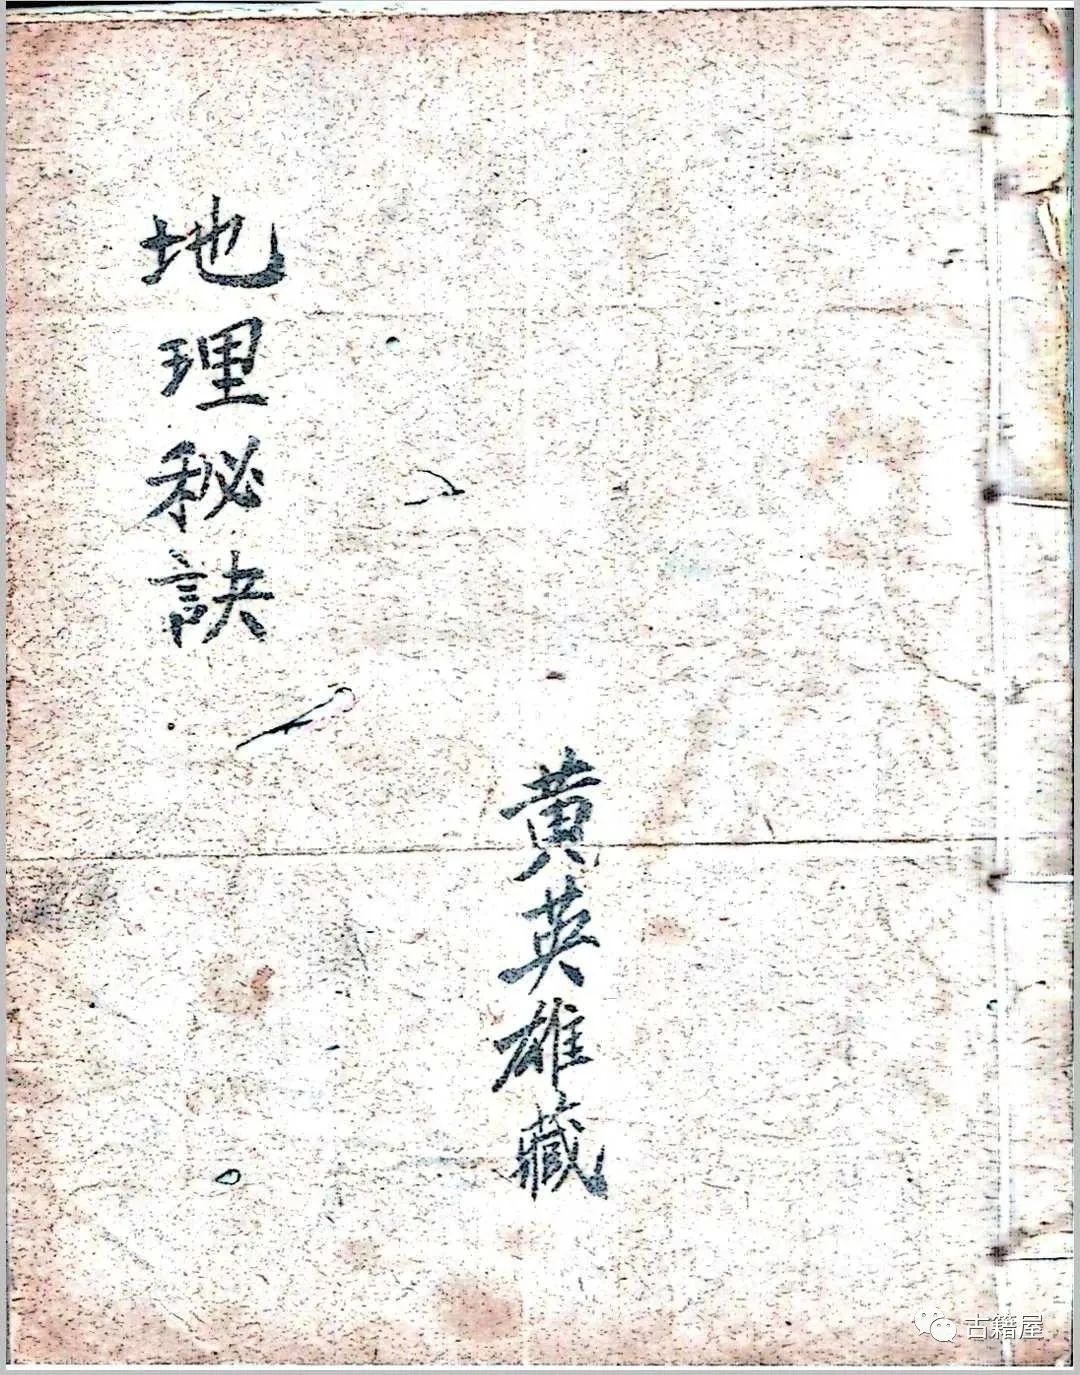 地理秘訣
黄英雄藏
古籍屋